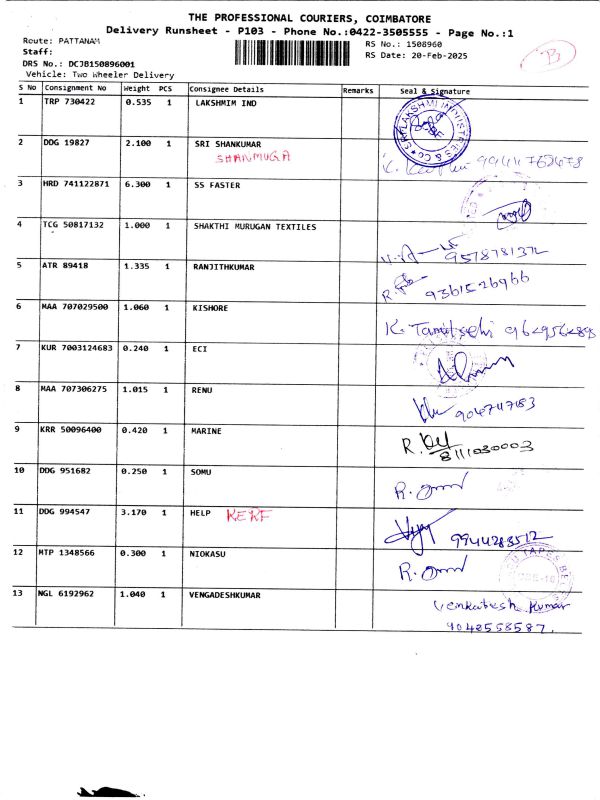 THE PROFESSIONAL COURIERS, COIMBATORE
Delivery Runsheet - P103 - Phone No.:0422-3505555 - Page No.:1
Route: PATTANAM
RS No.: 1508960
Staff:
RS Date: 20-Feb-2025
B
DRS No.: DCJB150896001
Vehicle: Two Wheeler Delivery
S No Consignment No Weight PCS Consignee Details Remarks Seal & Signature
1 TRP 730422 0.535 1 LAKSHMIM IND
SRI LAKSHMI INDUSTRIES & Co
2 DDG 19827 2.100 1 SRI SHANKUMAR
SHANMUGA
3 HRD 741122871 6.300 1 SS FASTER
4 TCG 50817132 1.000 1 SHAKTHI MURUGAN TEXTILES
9578781372
5 ATR 89418 1.335 1 RANJITHKUMAR
9361526966
6 MAA 707029500 1.060 1 KISHORE
K. Tamilselvi
7 KUR 7003124683 0.240 1 ECI
8 MAA 707306275 1.015 1 RENU
9047117183
9 KRR 50096400 0.420 1 MARINE
8111030003
10 DDG 951682 0.250 1 SOMU
11 DDG 994547 3.170 1 HELP KEKF
Vijay 9944283512
12 MTP 1348566 0.300 1 NIOKASU
13 NGL 6192962 1.040 1 VENGADESHKUMAR
Venkatesh Kumar
9048558587.